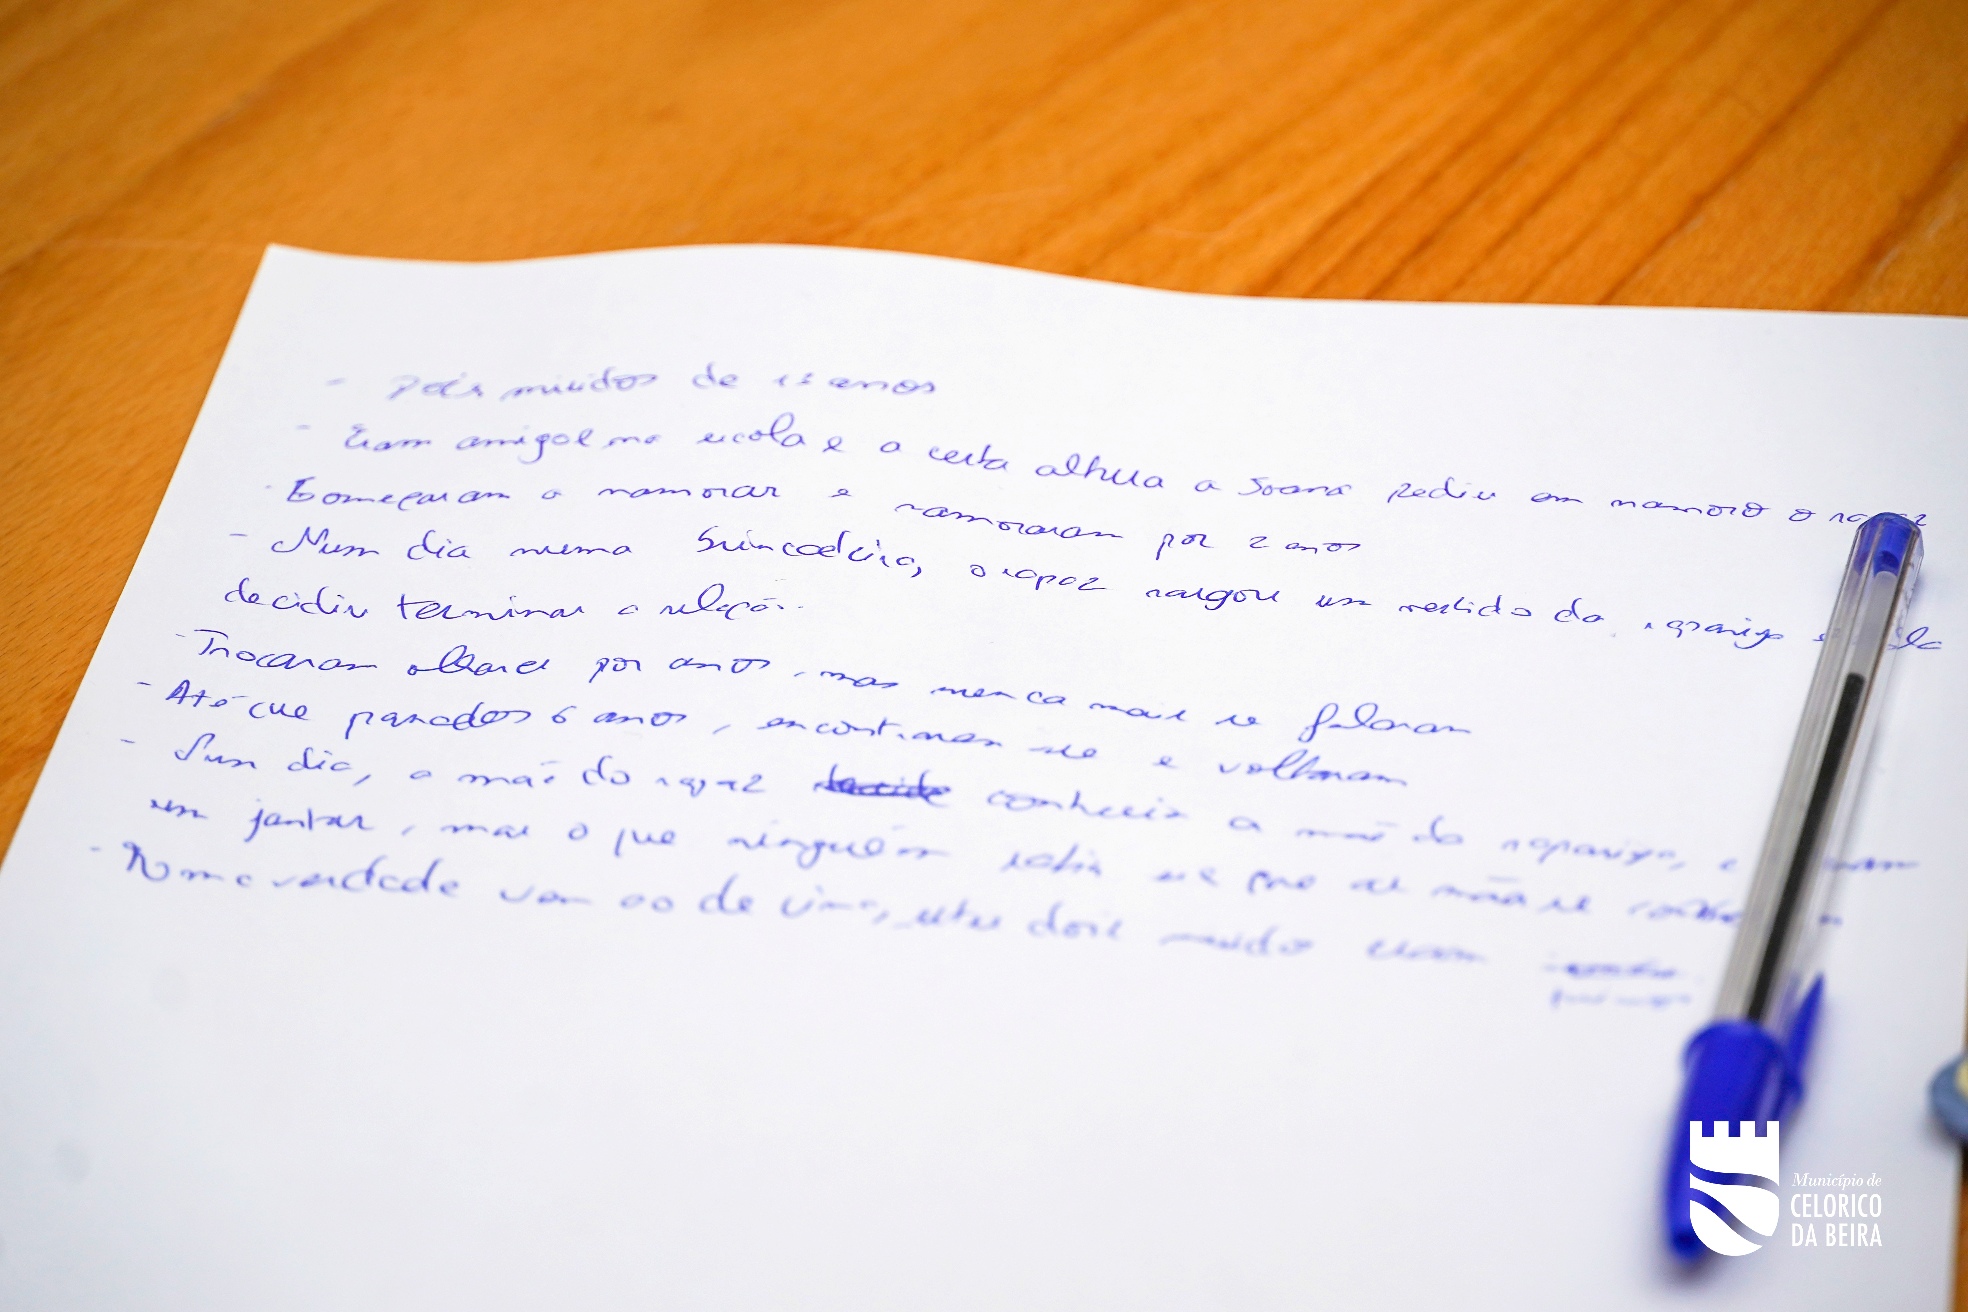 - Dois miúdos de 13 anos
- Eram amigos na escola e a certa altura a Joana pediu em namoro o rapaz
- Começaram a namorar e namoraram por 2 anos
- Num dia numa brincadeira, o rapaz rasgou um vestido da rapariga e ela
decidiu terminar a relação.
- Trocaram olhares por anos, mas nunca mais se falaram
- Até que passados 6 anos, encontraram-se e voltaram
- Num dia, a mãe do rapaz conheceu a mãe da rapariga, e
um jantar, mas o que ninguém sabia era que as mães se
- verdade vem ao de cima, estes dois miúdos eram
Município de
CELORICO
DA BEIRA